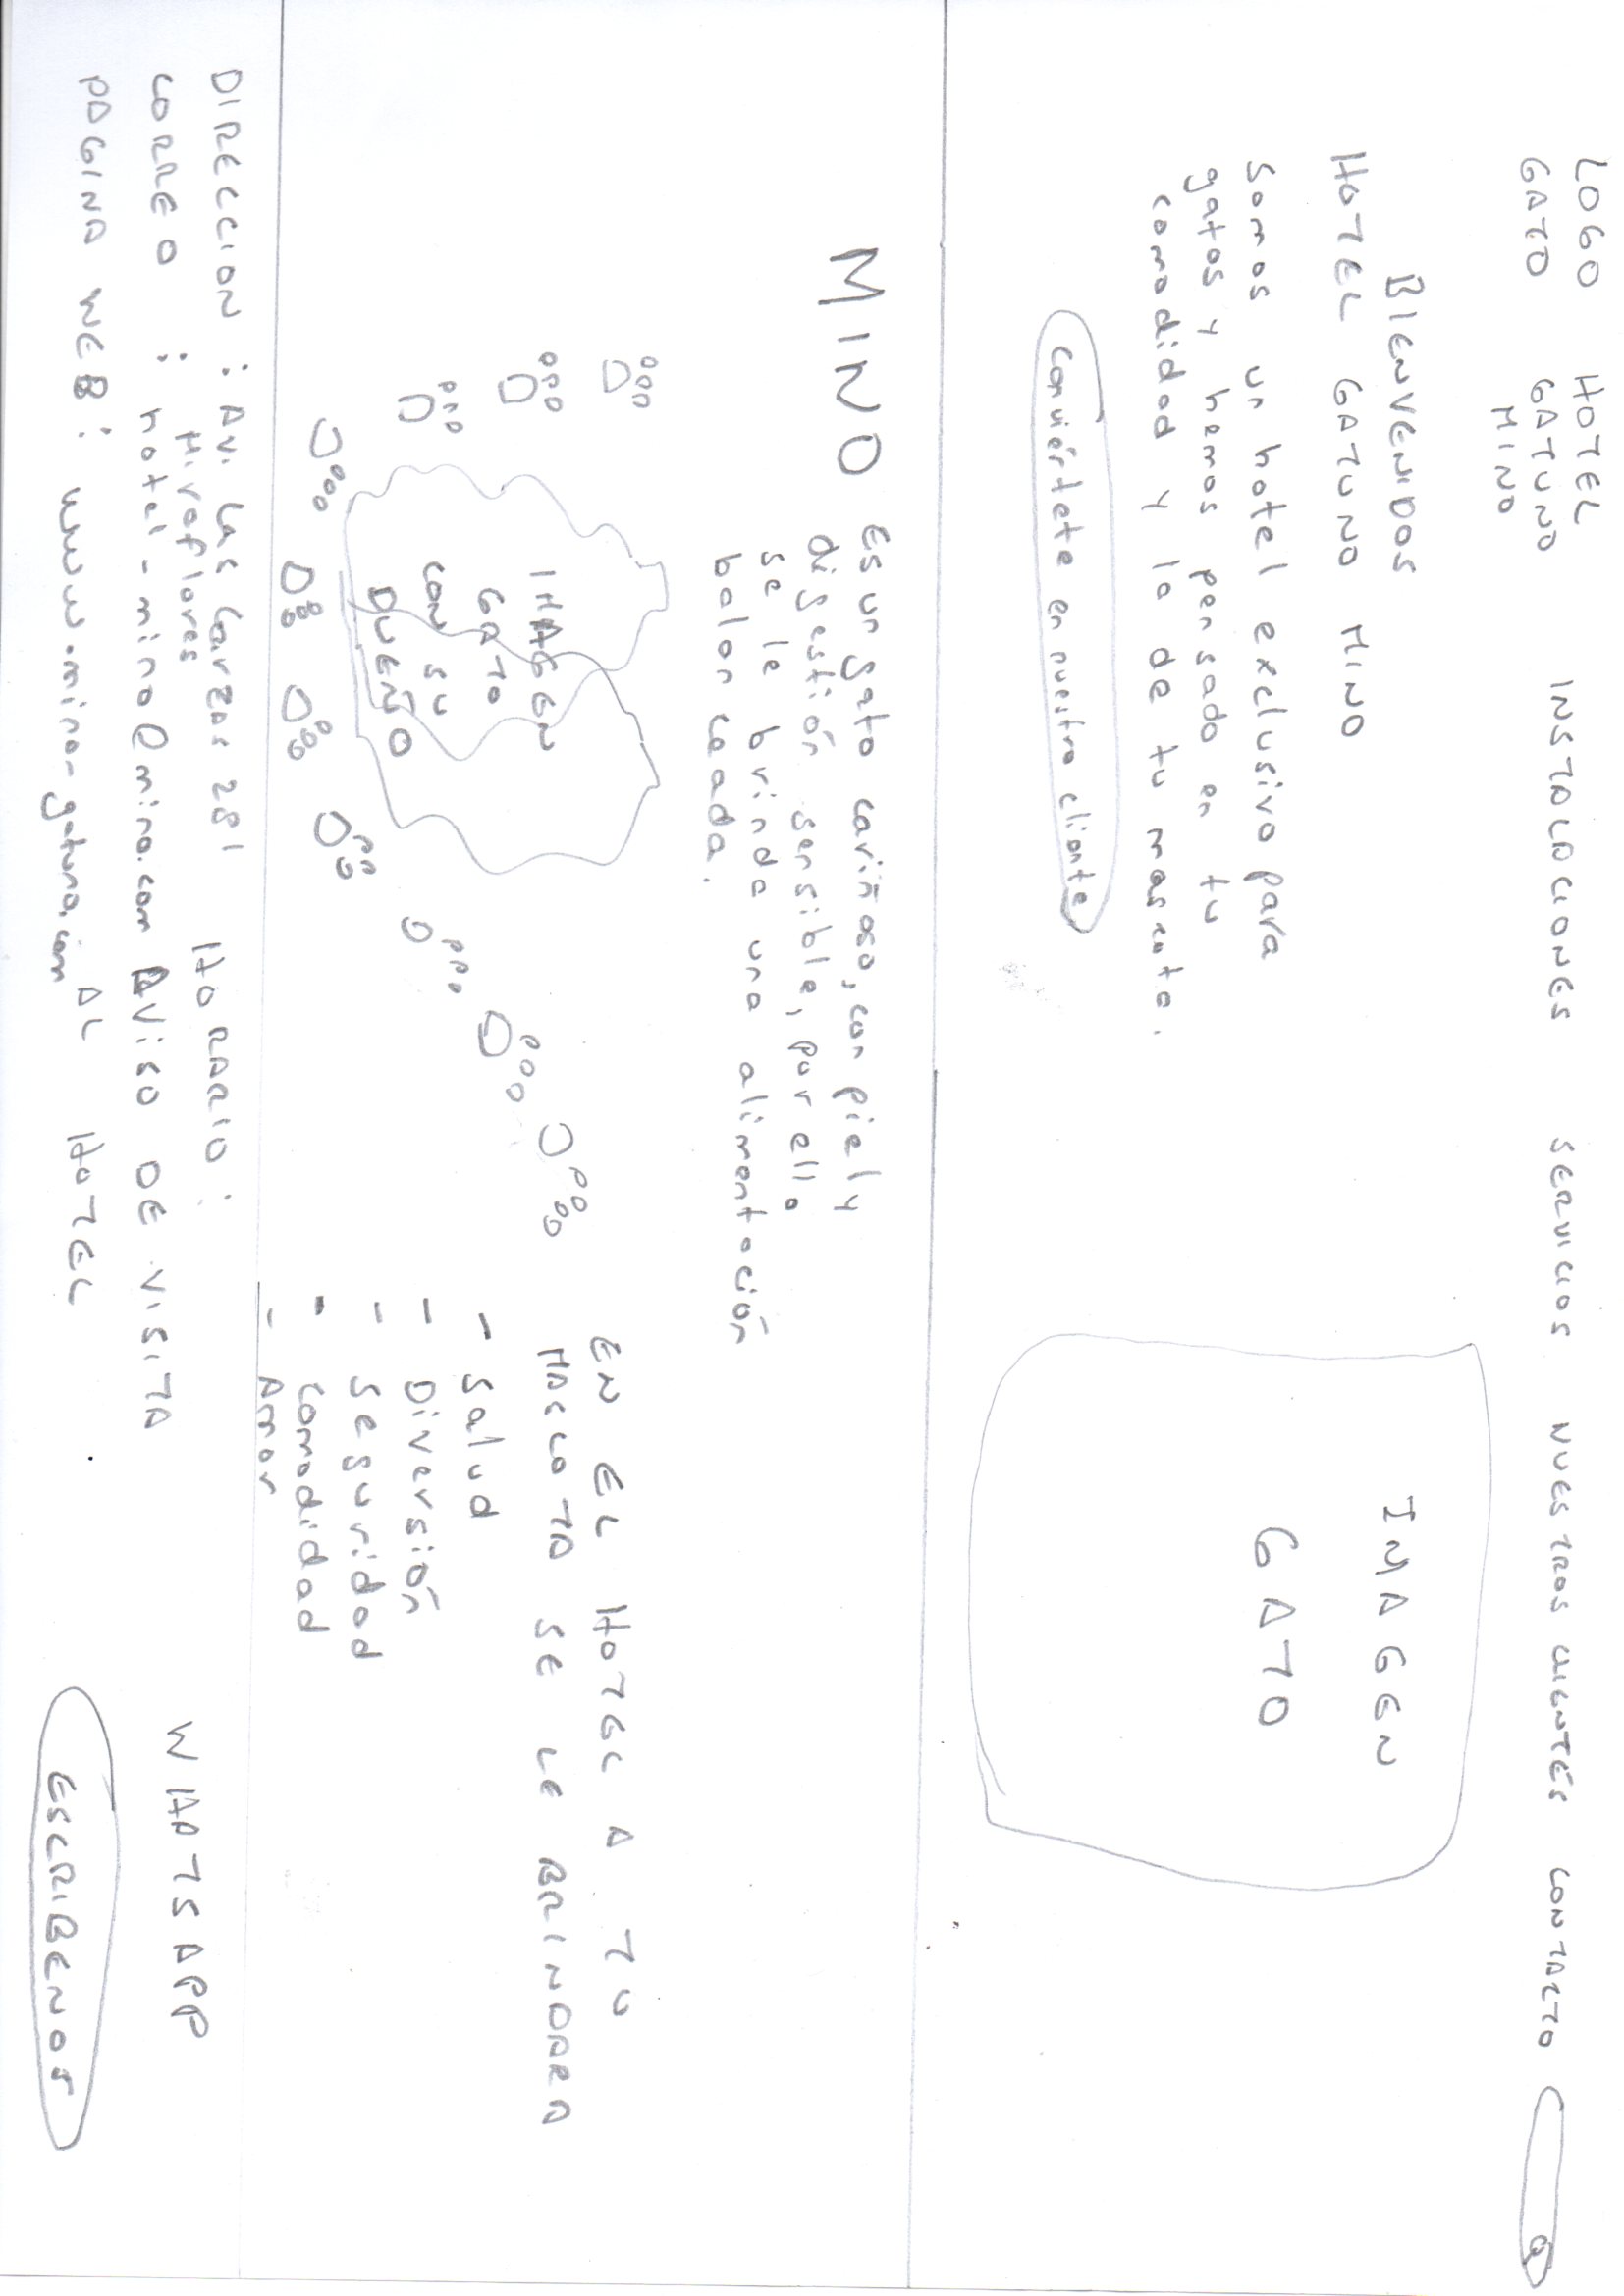 LOGO
GATO
HOTEL
GATUNO
MINO
INSTALACIONES
SERVICIOS
NUESTROS CLIENTES
CONTACTO
BIENVENIDOS
HOTEL GATUNO MINO
Somos un hotel exclusivo para
gatos y hemos pensado en tu
comodidad y la de tu mascota.
Conviértete en nuestro cliente
IMAGEN
GATO
MINO
Es un gato cariñoso, con piel y
digestión sensible, por ello
se le brinda una alimentación
balanceada.
IMAGEN
GATO
CON SU
DUEÑO
EN EL HOTEL A TU
MASCOTA SE LE BRINDARA
- Salud
- Diversión
- Seguridad
- Comodidad
- Amor
DIRECCION : Av. Las Garzas 281
Miraflores
CORREO : hotel-mino@mino.com
PAGINA WEB : www.mino-gatuno.com
HORARIO :
AVISO DE VISITA
AL HOTEL
WHATSAPP
ESCRIBENOS